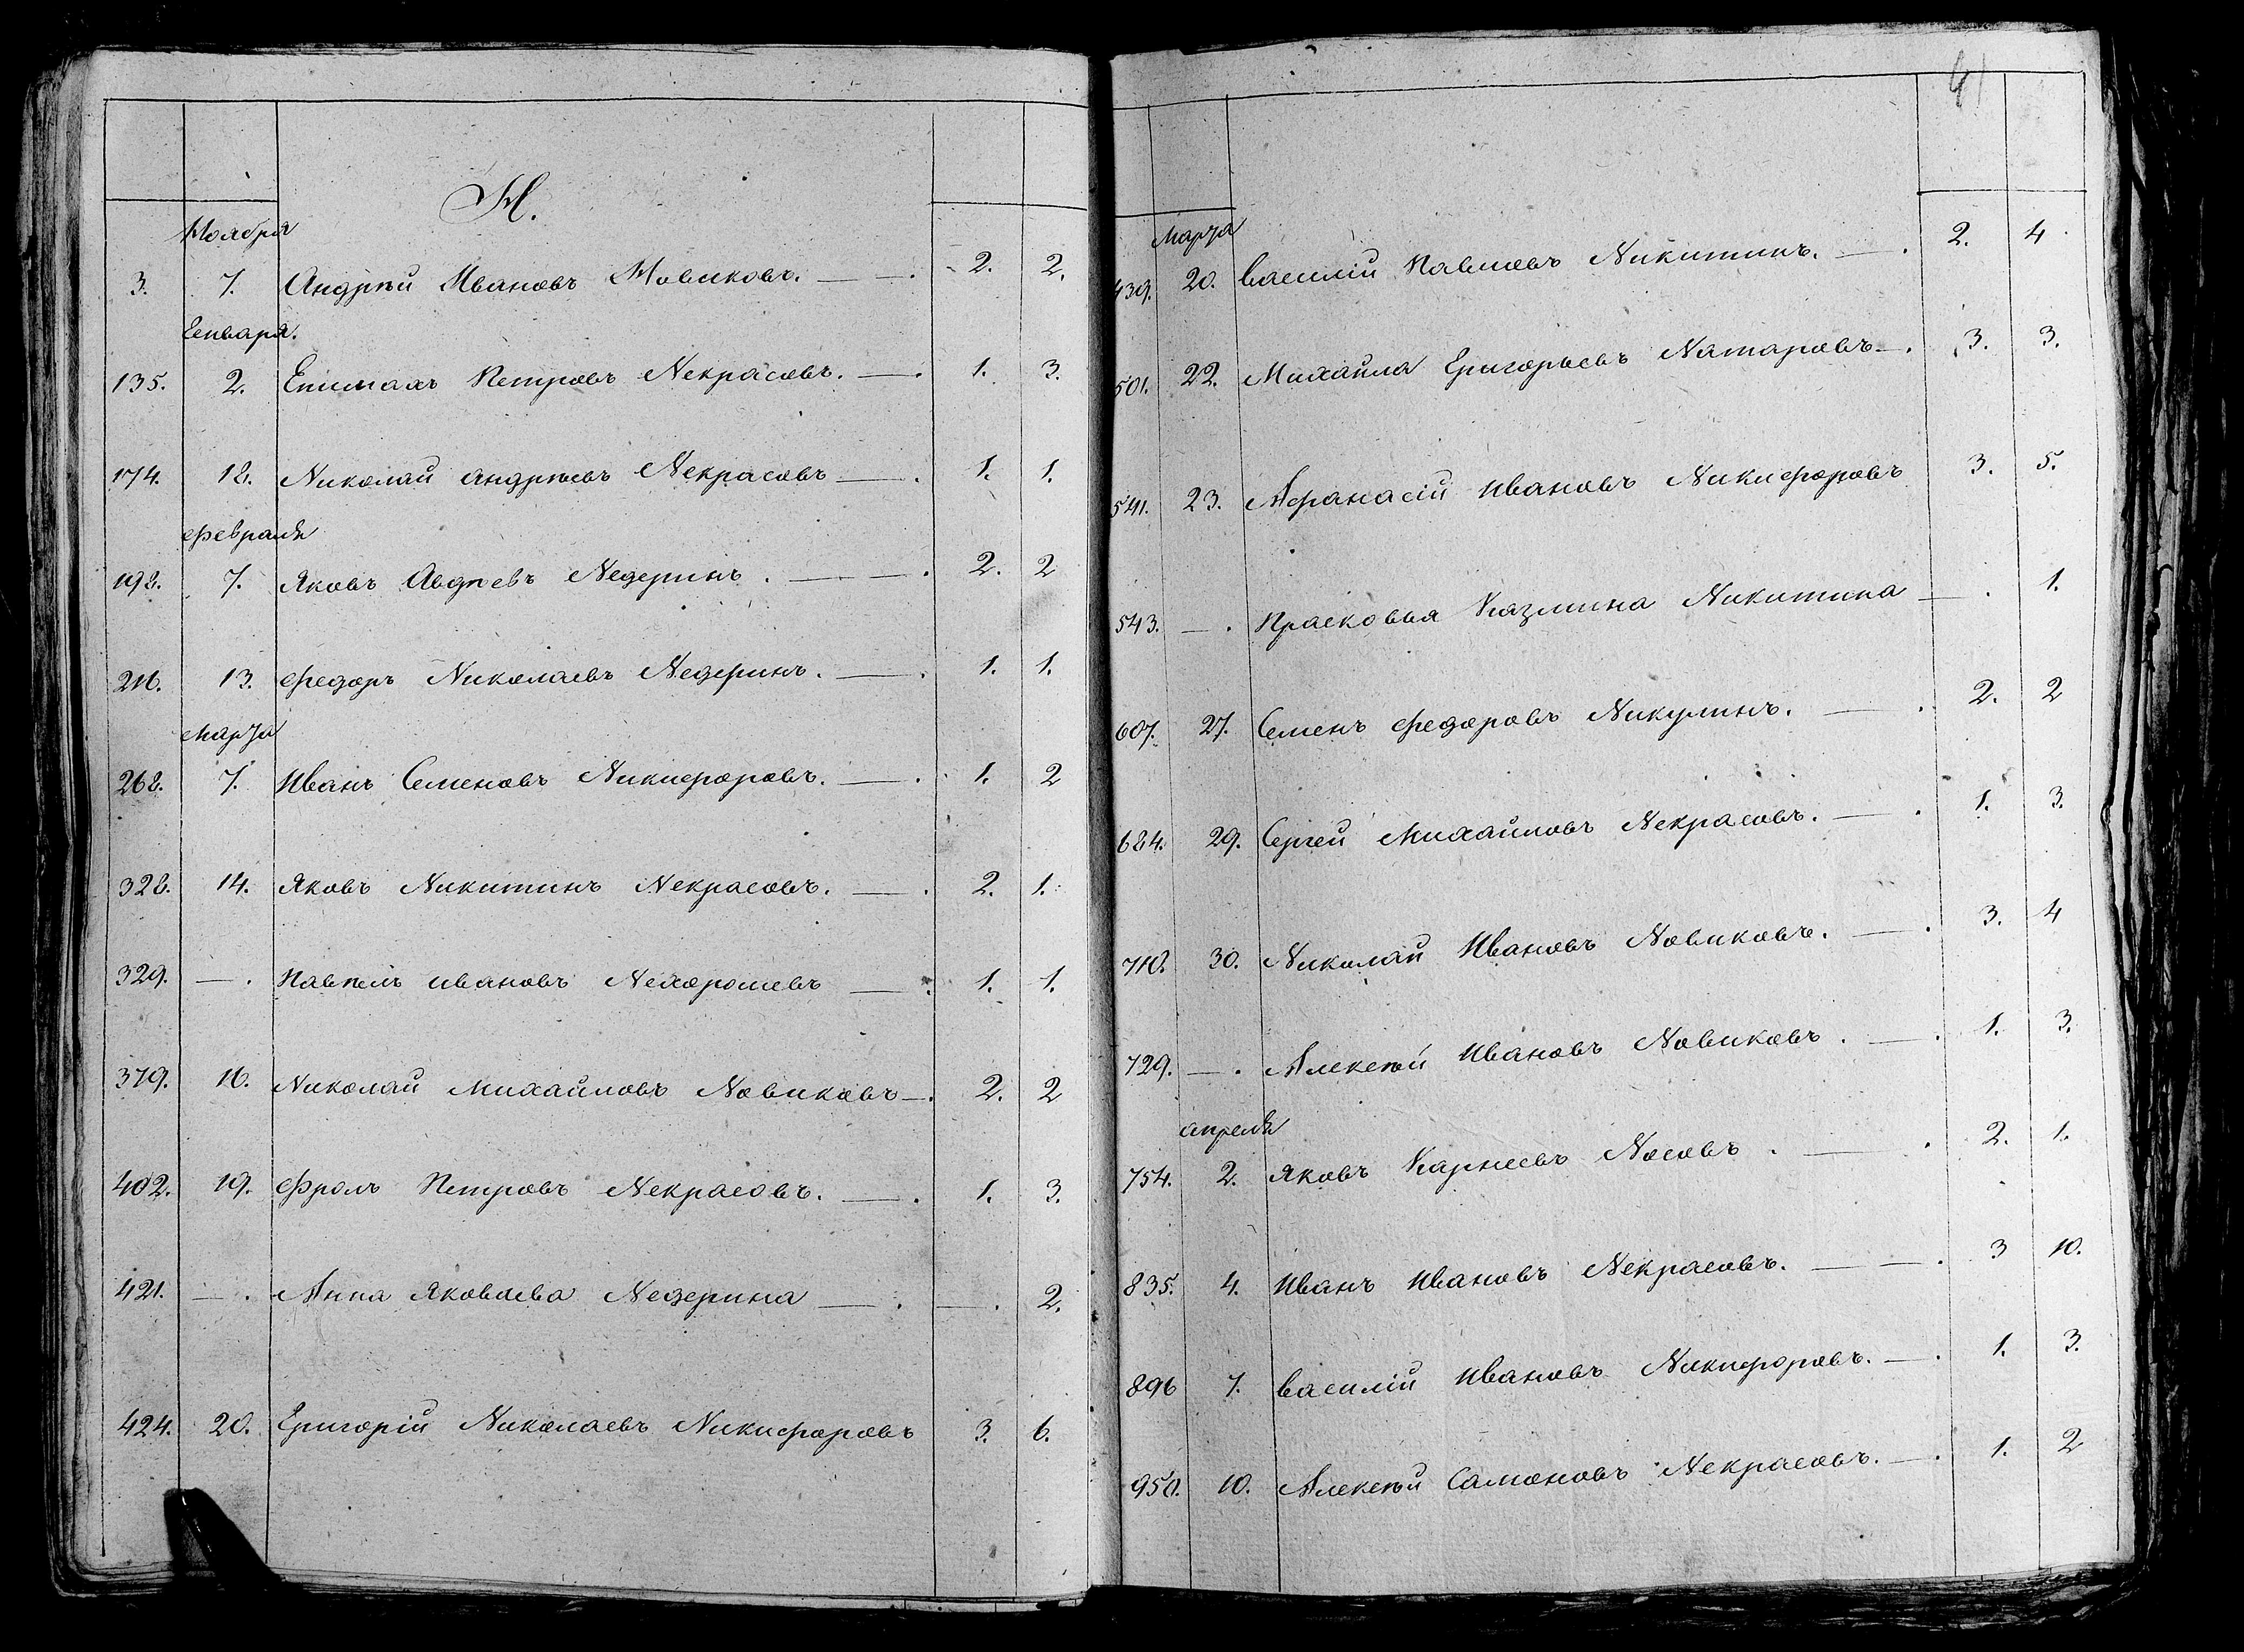 Н.
Ноября
3. 7. Андрѣй Ивановъ Новиковъ. — . 2. 2.
Генваря.
135. 2. Епимахъ Петровъ Некрасовъ. — . 1. 3.
174. 18. Николай Андрѣевъ Некрасовъ — . 1. 1.
февраля
198. 7. Яковъ Авдѣевъ Недеринъ . — — . 2. 2
216. 13. Федоръ Николаевъ Недеринъ. — . 1. 1.
Марта
268. 7. Иванъ Семеновъ Никифоровъ. — . 1. 2
328. 14. Яковъ Никитинъ Некрасовъ. — . 2. 1.
329. — . Павѣлъ Ивановъ Нехорошевъ — . 1. 1.
379. 16. Николай Михайловъ Новиковъ — . 2. 2
402. 19. Фролъ Петровъ Некрасовъ. — . 1. 3.
421. — . Анна Яковлева Недерина — . — . 2.
424. 20. Григорій Николаевъ Никифоровъ 3. 6.
41
Марта
439. 20. Василій Павловъ Никитинъ. — . 2. 4
501. 22. Михайла Григорьевъ Натаровъ — . 3. 3.
541. 23. Афанасій Ивановъ Никифоровъ 3. 5.
543. — . Прасковья Казмина Никитина — . 1.
607. 27. Семенъ Федоровъ Никулинъ. — . 2. 2
684. 29. Сергей Михайловъ Некрасовъ. — . 1. 3.
710. 30. Николай Ивановъ Новиковъ. — . 3. 4
729. — . Алексѣй Ивановъ Новиковъ . — . 1. 3.
апреля
754. 2. Яковъ Карнеевъ Носовъ . — . 2. 1.
835. 4. Иванъ Ивановъ Некрасовъ. — — . 3 10.
896 7. Василій Ивановъ Никифоровъ. — . 1. 3.
950. 10. Алексѣй Самоновъ Некрасовъ. — . 1. 2